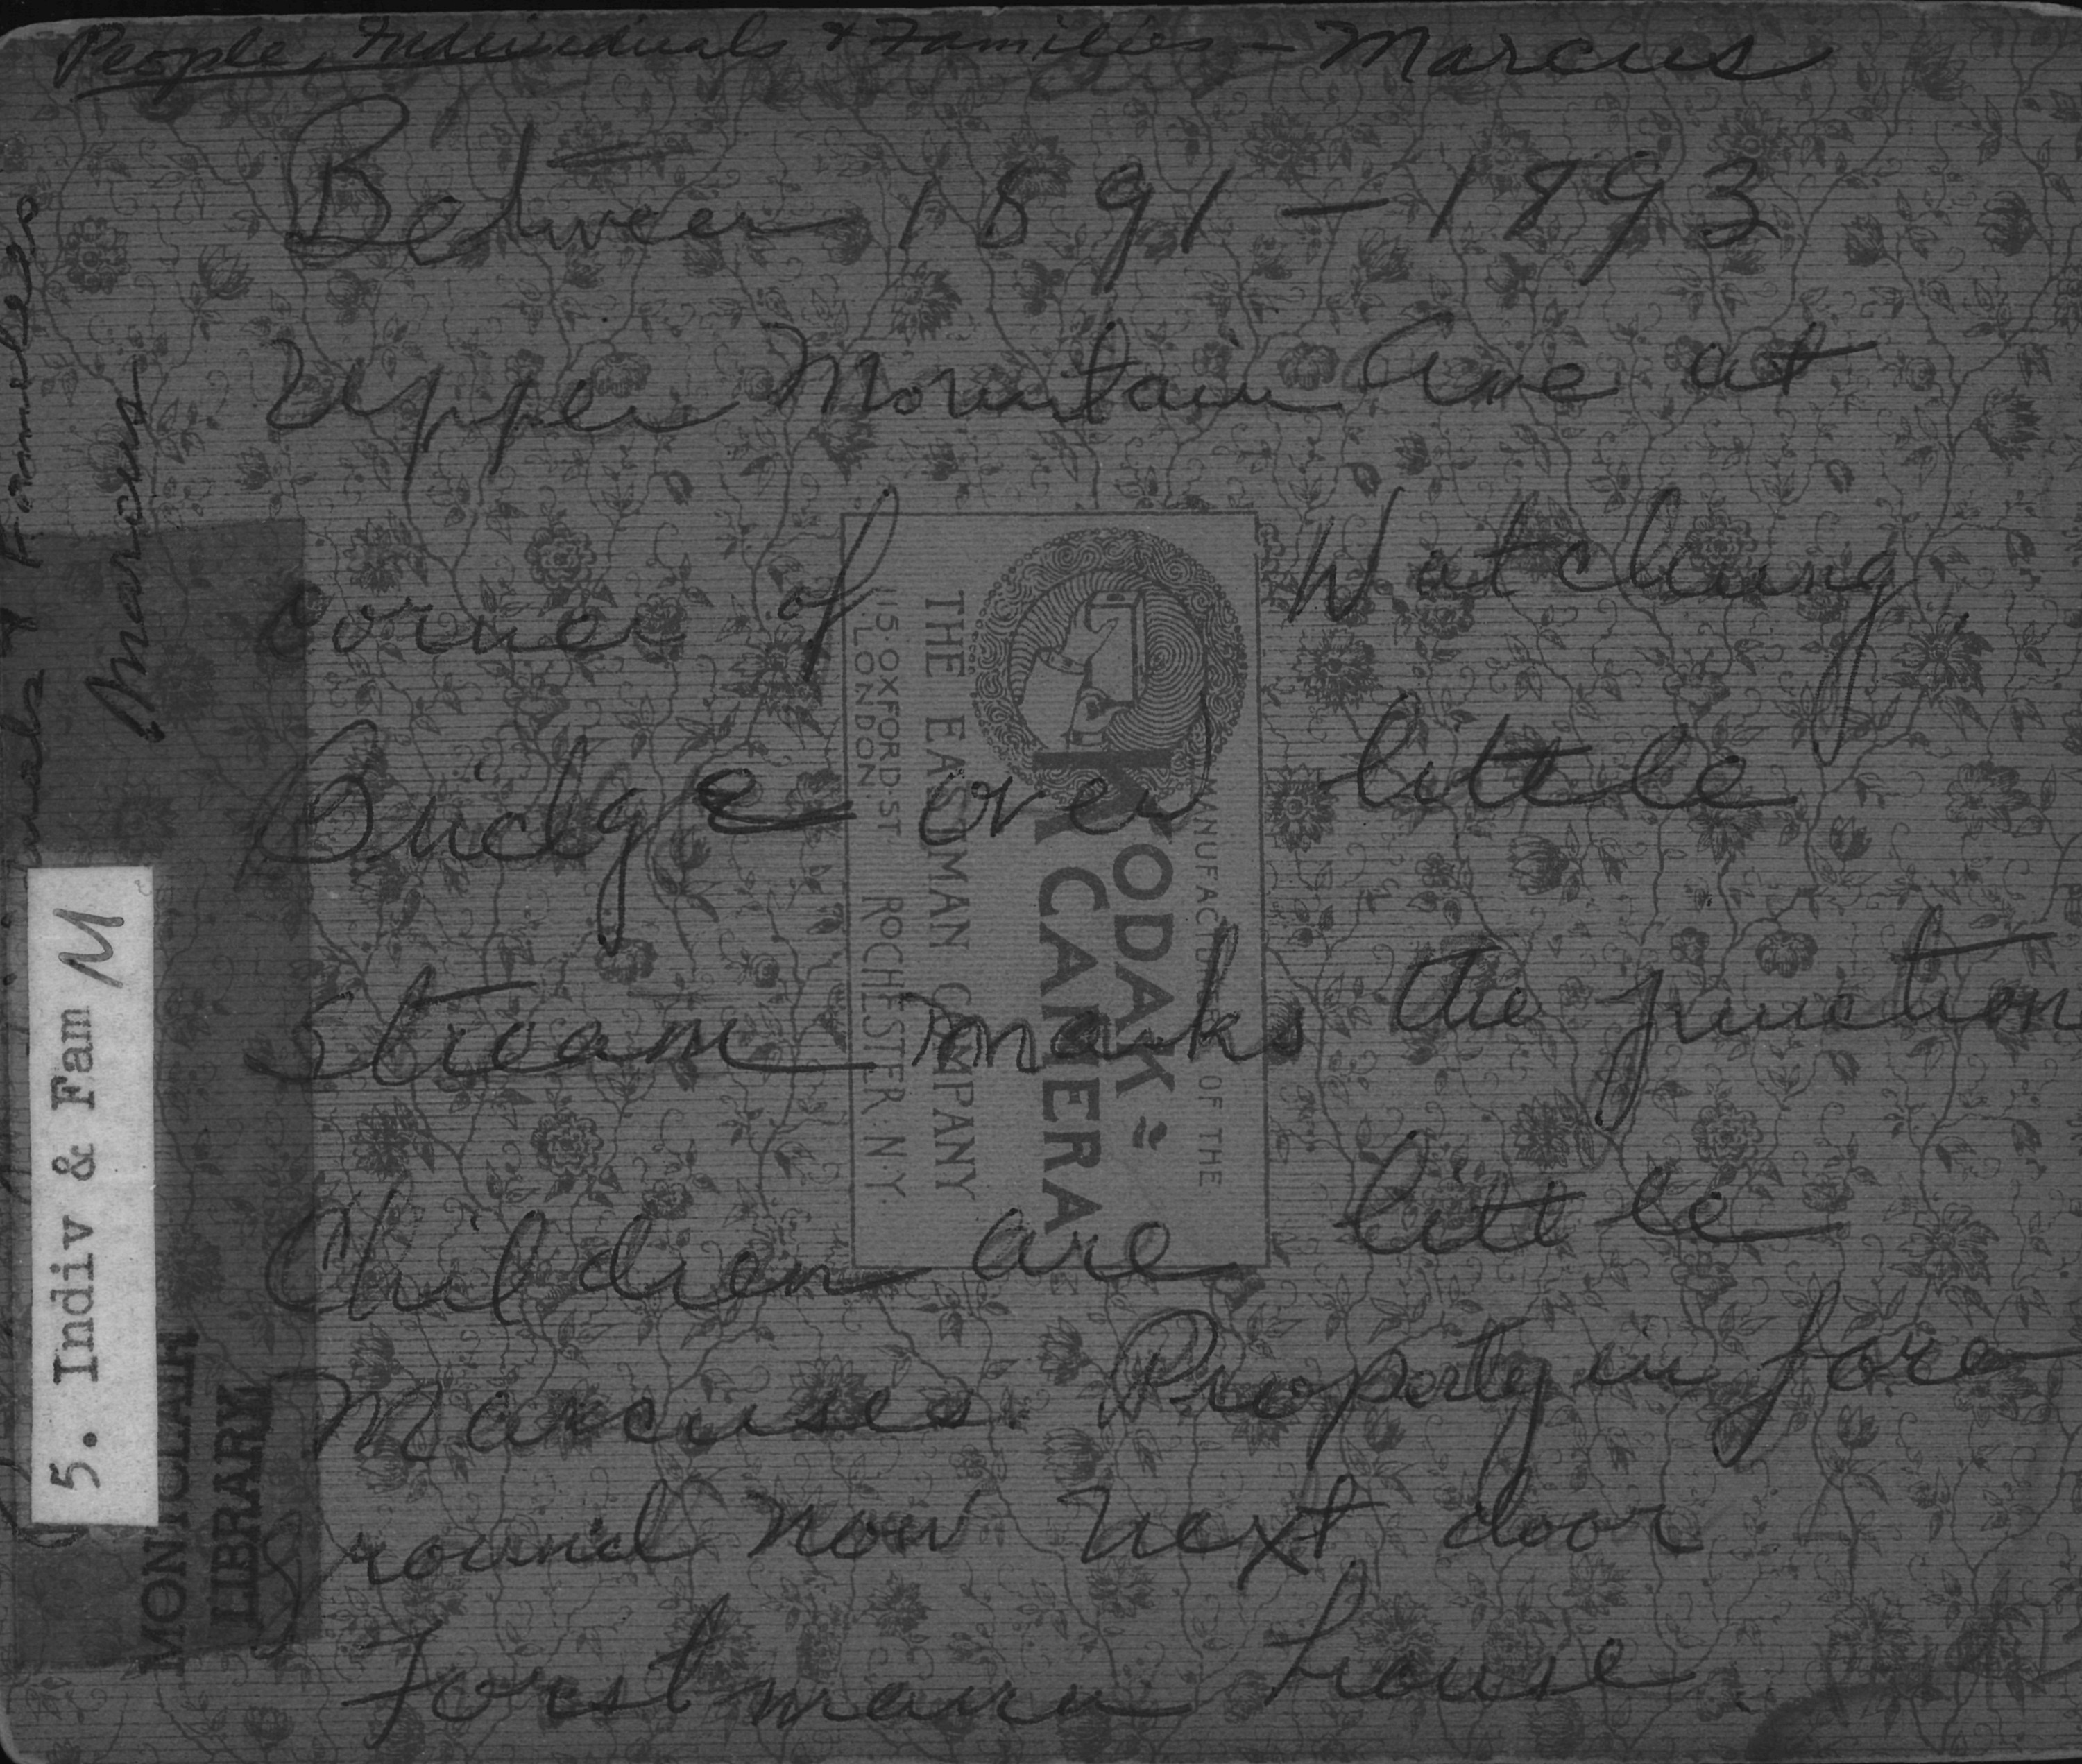 People, Individuals & Families - Marcus
Between 1891-1893
Upper Mountain Ave at
corner of Watchung.
Bridge over little
stream marks the junction
Children are little
Marcuses. Property in fore
round now next door
Forstmann house.
Families
Marcus
5. Indiv & Fam M
MONTCLAIR
LIBRARY
MANUFACTURE OF THE
KODAK
CAMERA
THE EASTMAN COMPANY
115 OXFORD ST ROCHESTER N.Y.
LONDON